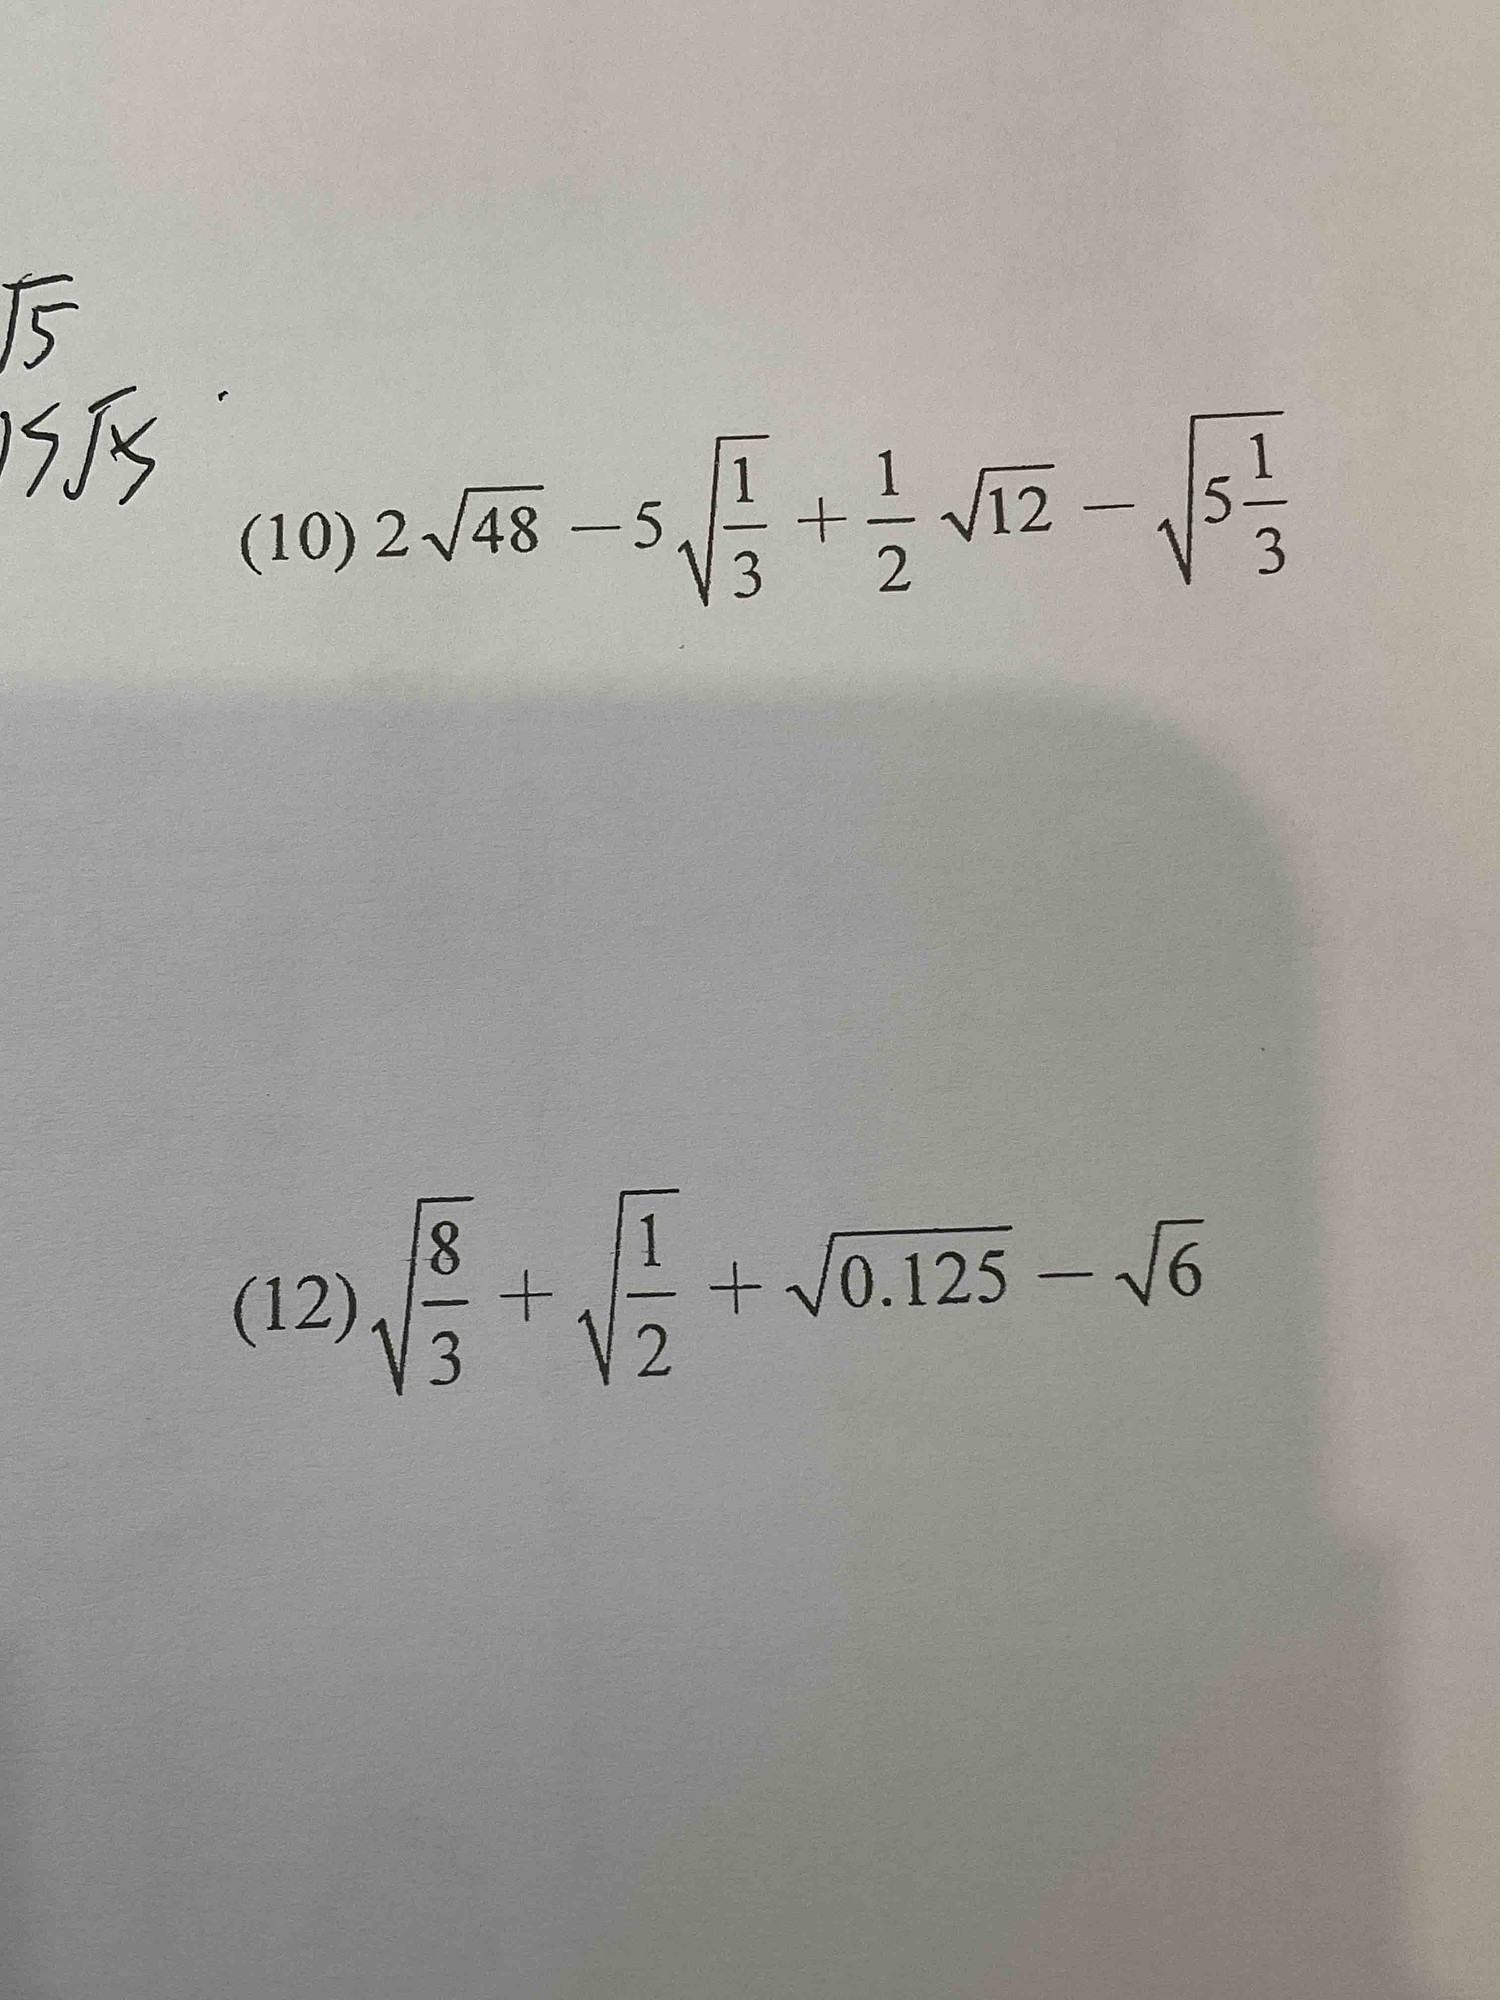 √5
15√5
(10) 2√48 − 5√(1/3) + 1/2 √12 − √(5 1/3)
(12) √(8/3) + √(1/2) + √0.125 − √6